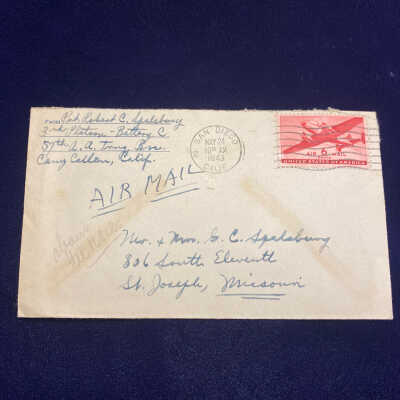 FROM Pvt. Robert C. Spalsbury
3rd Platoon - Battery C
57th A.A. Trng. Bn.
Camp Callan, Calif.
SAN DIEGO
MAY 24
1943
CALIF.
AIR 6 MAIL
UNITED STATES OF AMERICA
AIR MAIL
Mr. & Mrs. G. C. Spalsbury
806 South Eleventh
St. Joseph, Missouri